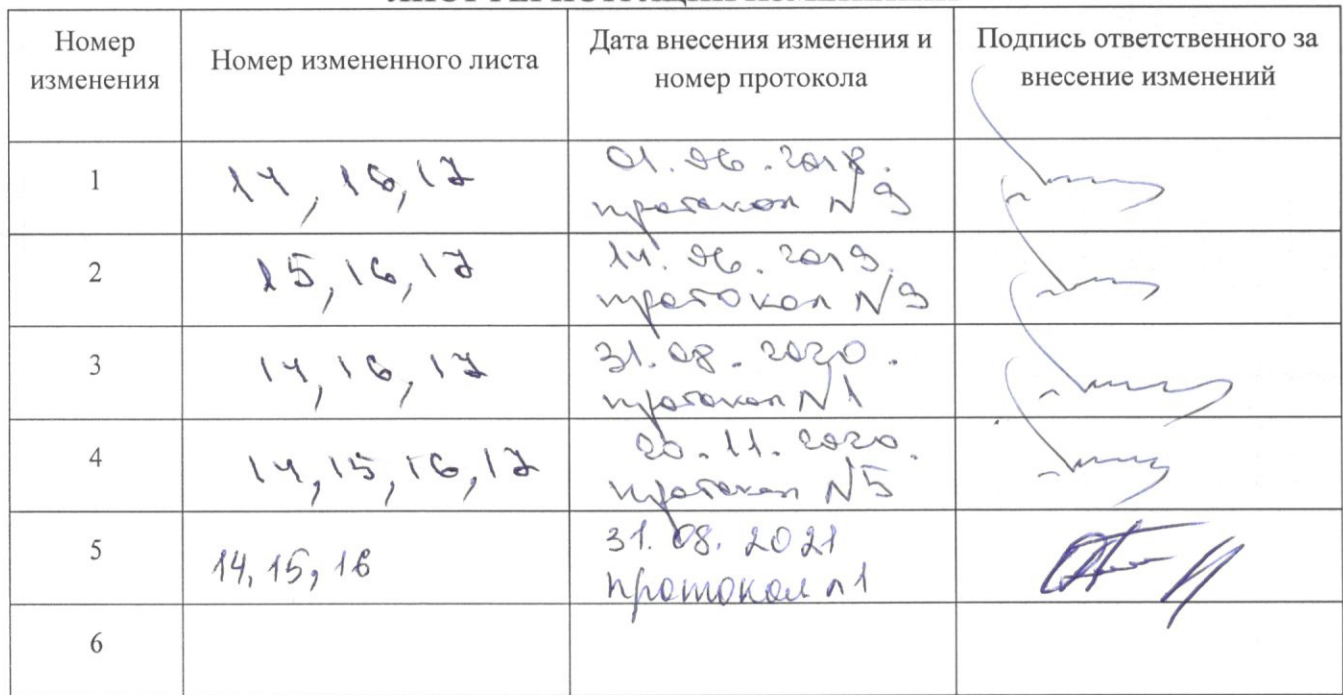 Номер изменения
Номер измененного листа
Дата внесения изменения и номер протокола
Подпись ответственного за внесение изменений
1
14, 16, 17
01.06.2018.
протокол N 9
2
15, 16, 17
14.06.2019.
протокол N 9
3
14, 16, 17
31.08.2020.
протокол N 1
4
14, 15, 16, 17
20.11.2020.
протокол N 5
5
14, 15, 16
31.08.2021
протокол n 1
6